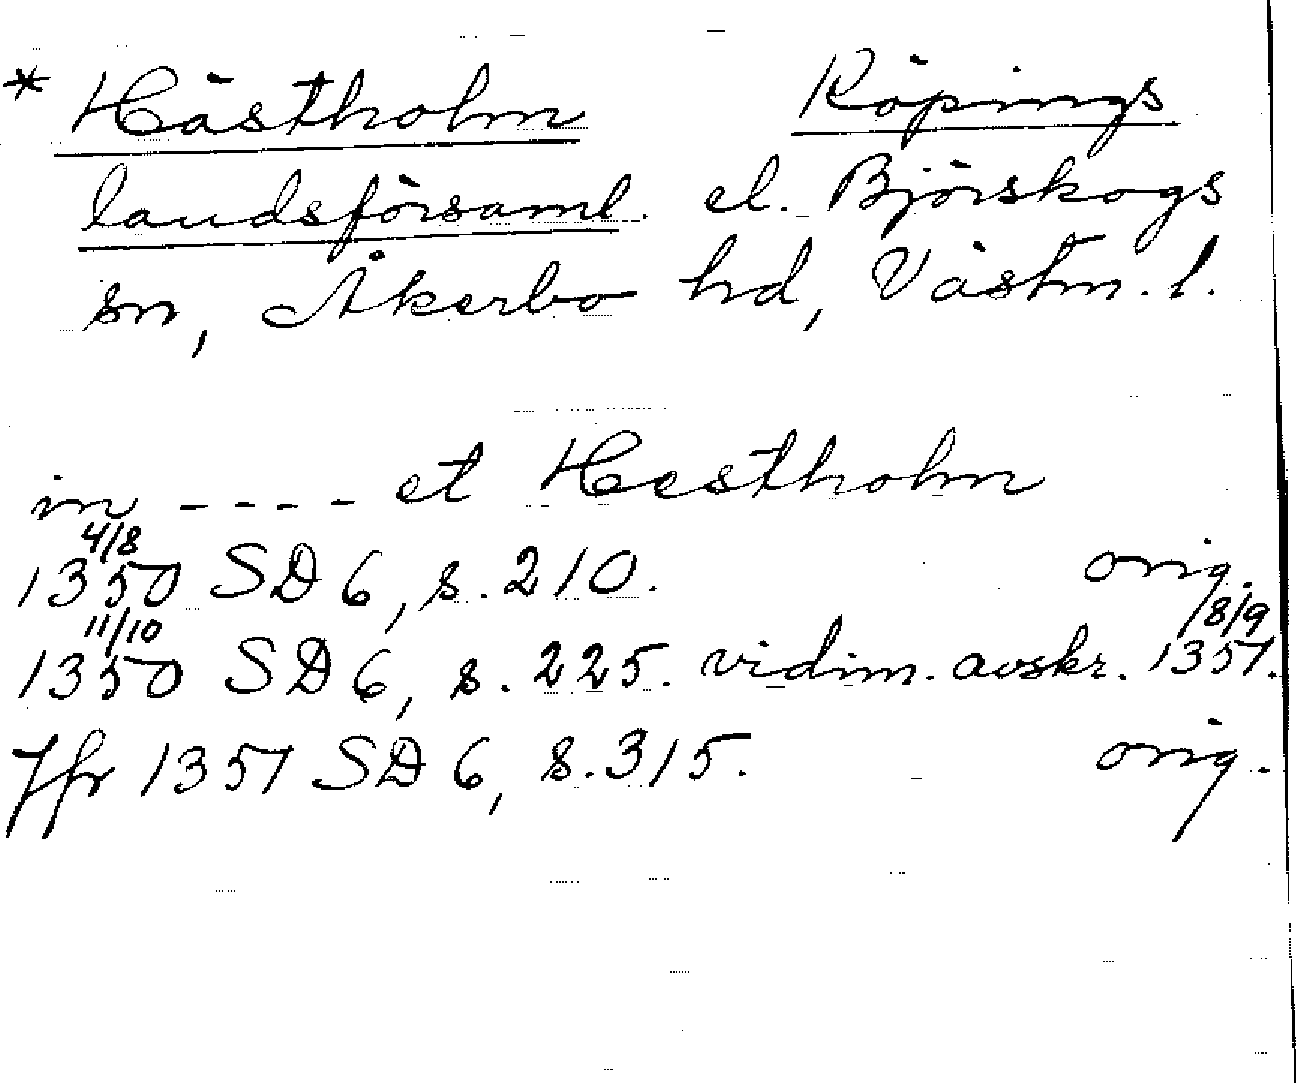 * Hästholm Köpings
landsförsaml. el. Björskogs
sn, Åkerbo hd, Västm. l.
in - - - - et Hestholm
4/8
1350 SD 6, s. 210. orig.
11/10 18/9
1350 SD 6, s. 225. vidim. avskr. 1351.
Jfr 1351 SD 6, s. 315. orig.